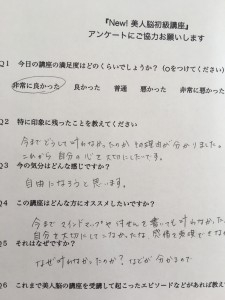 『New! 美人脳初級講座』
アンケートにご協力お願いします
Q1 今日の講座の満足度はどのくらいでしょうか?(○をつけてください)
非常に良かった 良かった 普通 悪かった 非常に悪かった
Q2 特に印象に残ったことを教えてください
今までどうして叶わなかったのか その理由が分かりました。
これから 自分の心を大切にしたいです。
Q3 今の気分はどんな感じですか?
自由になろうと思います。
Q4 この講座はどんな方にオススメしたいですか?
今まで マインドマップや 付せんを書いても叶わなかった
自分を大切にしていなかったな 感情を表現できな
Q5 それはなぜですか?
なぜ叶わなかったのか? などが分かるので
Q6 これまで美人脳の講座を受講して起こったエピソードなどがあれば教え